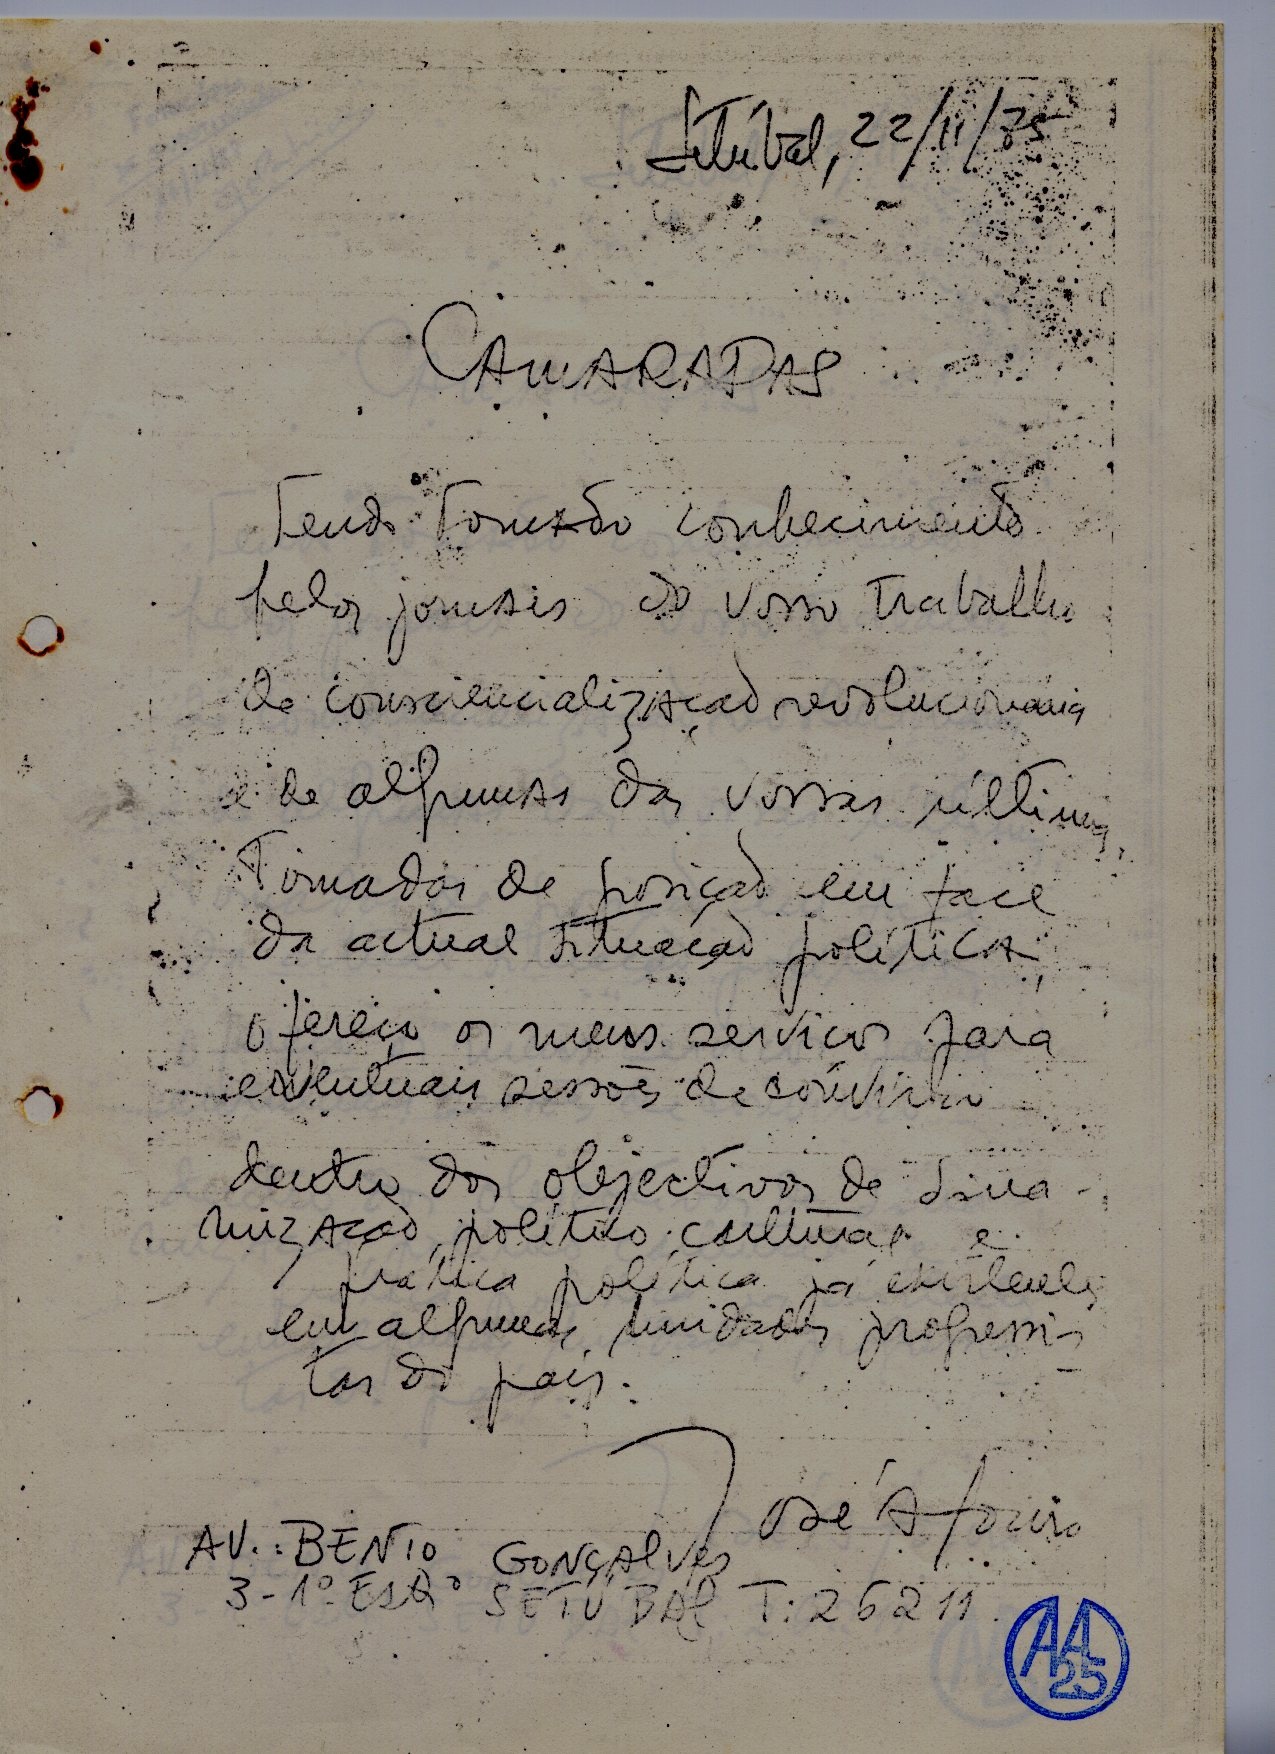 Setúbal, 22/11/75
CAMARADAS
Tendo tomado conhecimento
pelos jornais do vosso trabalho
de consciencialização revolucionária
e de algumas das vossas últimas
tomadas de posição em face
da actual situação política,
ofereço os meus serviços para
eventuais sessões de convívio
dentro dos objectivos de dina-
mização político-cultural e
prática política já existentes
em algumas unidades progressis-
tas do país.
José Afonso
AV.: BENTO GONÇALVES
3-1º ESQº SETÚBAL T: 26211.
AA
25